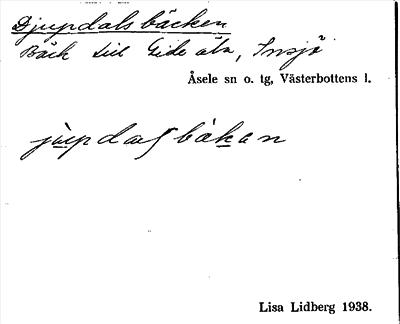 Djupdalsbäcken
Bäck till Gide älv, Insjö
Åsele sn o. tg, Västerbottens l.
jupdaʃbäkan
Lisa Lidberg 1938.